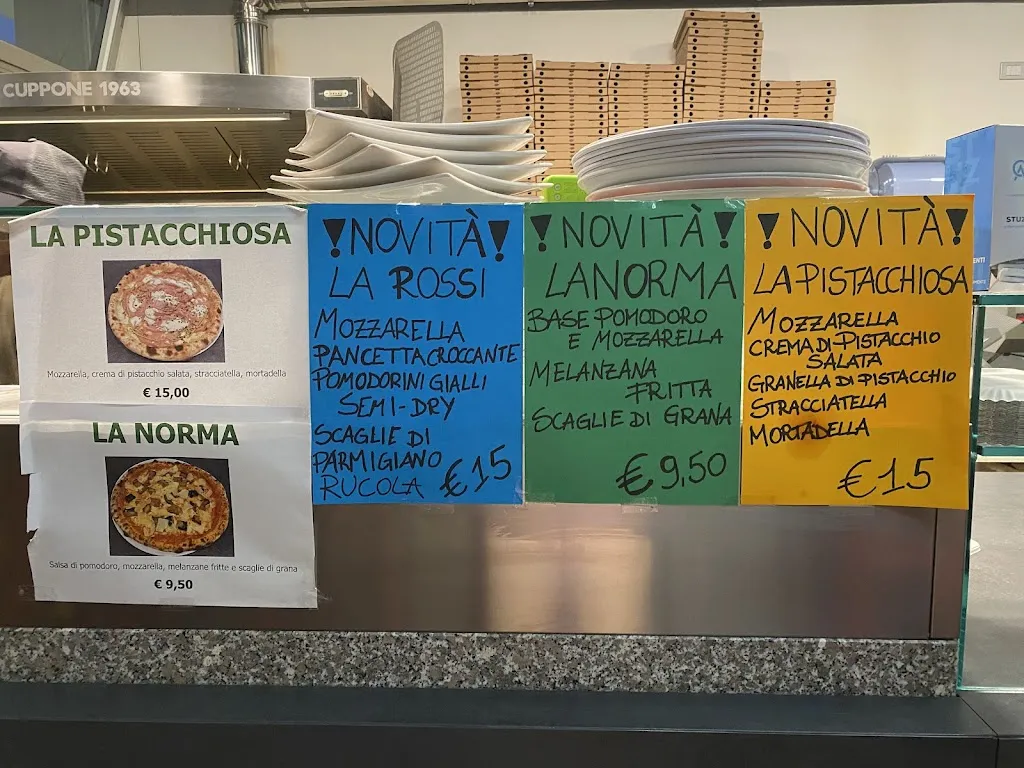 CUPPONE 1963
LA PISTACCHIOSA
Mozzarella, crema di pistacchio salata, stracciatella, mortadella
€ 15,00
LA NORMA
Salsa di pomodoro, mozzarella, melanzane fritte e scaglie di grana
€ 9,50
!NOVITÀ!
LA ROSSI
MOZZARELLA
PANCETTA CROCCANTE
POMODORINI GIALLI
SEMI-DRY
SCAGLIE DI
PARMIGIANO
RUCOLA €15
!NOVITÀ!
LA NORMA
BASE POMODORO
E MOZZARELLA
MELANZANA
FRITTA
SCAGLIE DI GRANA
€9,50
!NOVITÀ!
LA PISTACCHIOSA
MOZZARELLA
CREMA DI PISTACCHIO
SALATA
GRANELLA DI PISTACCHIO
STRACCIATELLA
MORTADELLA
€15